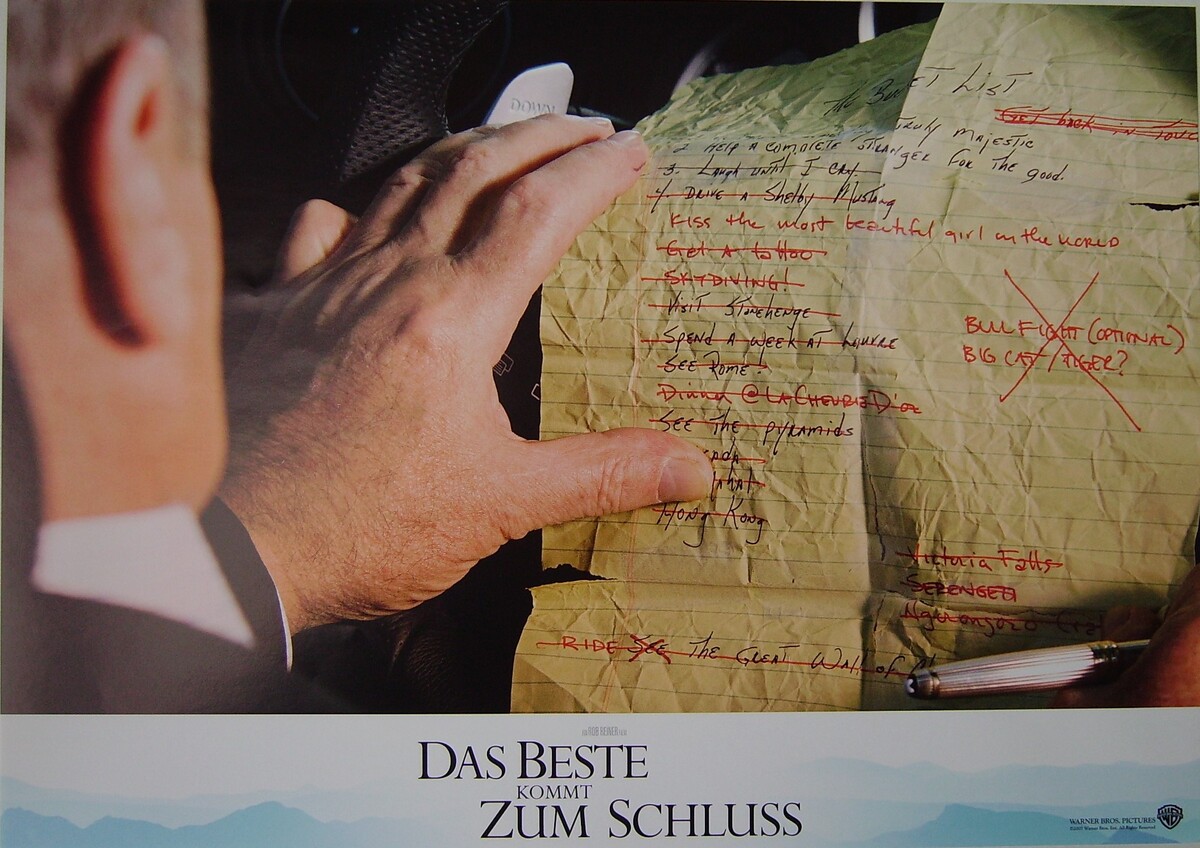 DOWN
The Bucket List
Get back in touch
Truly Majestic
2 Help a complete stranger for the good.
3. Laugh until I cry.
4. Drive a Shelby Mustang
Kiss the most beautiful girl in the world
Get a tattoo
SKYDIVING!
Visit Stonehenge
Spend a week at Louvre
BULL FIGHT (OPTIONAL)
BIG CAT / TIGER?
See Rome!
Dinner @ La Chevre D'or
See The pyramids
Hong Kong
Victoria Falls
SERENGETI
RIDE SEE The Great Wall of
DAS BESTE
KOMMT
ZUM SCHLUSS
WARNER BROS. PICTURES
WB